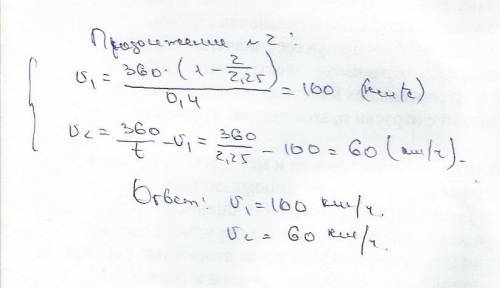 Продолжение №2:
υ₁ = 360·(1 - 2/2,25) / 0,4 = 100 (км/ч)
υ₂ = 360/t - υ₁ = 360/2,25 - 100 = 60 (км/ч).
Ответ: υ₁ = 100 км/ч.
υ₂ = 60 км/ч.